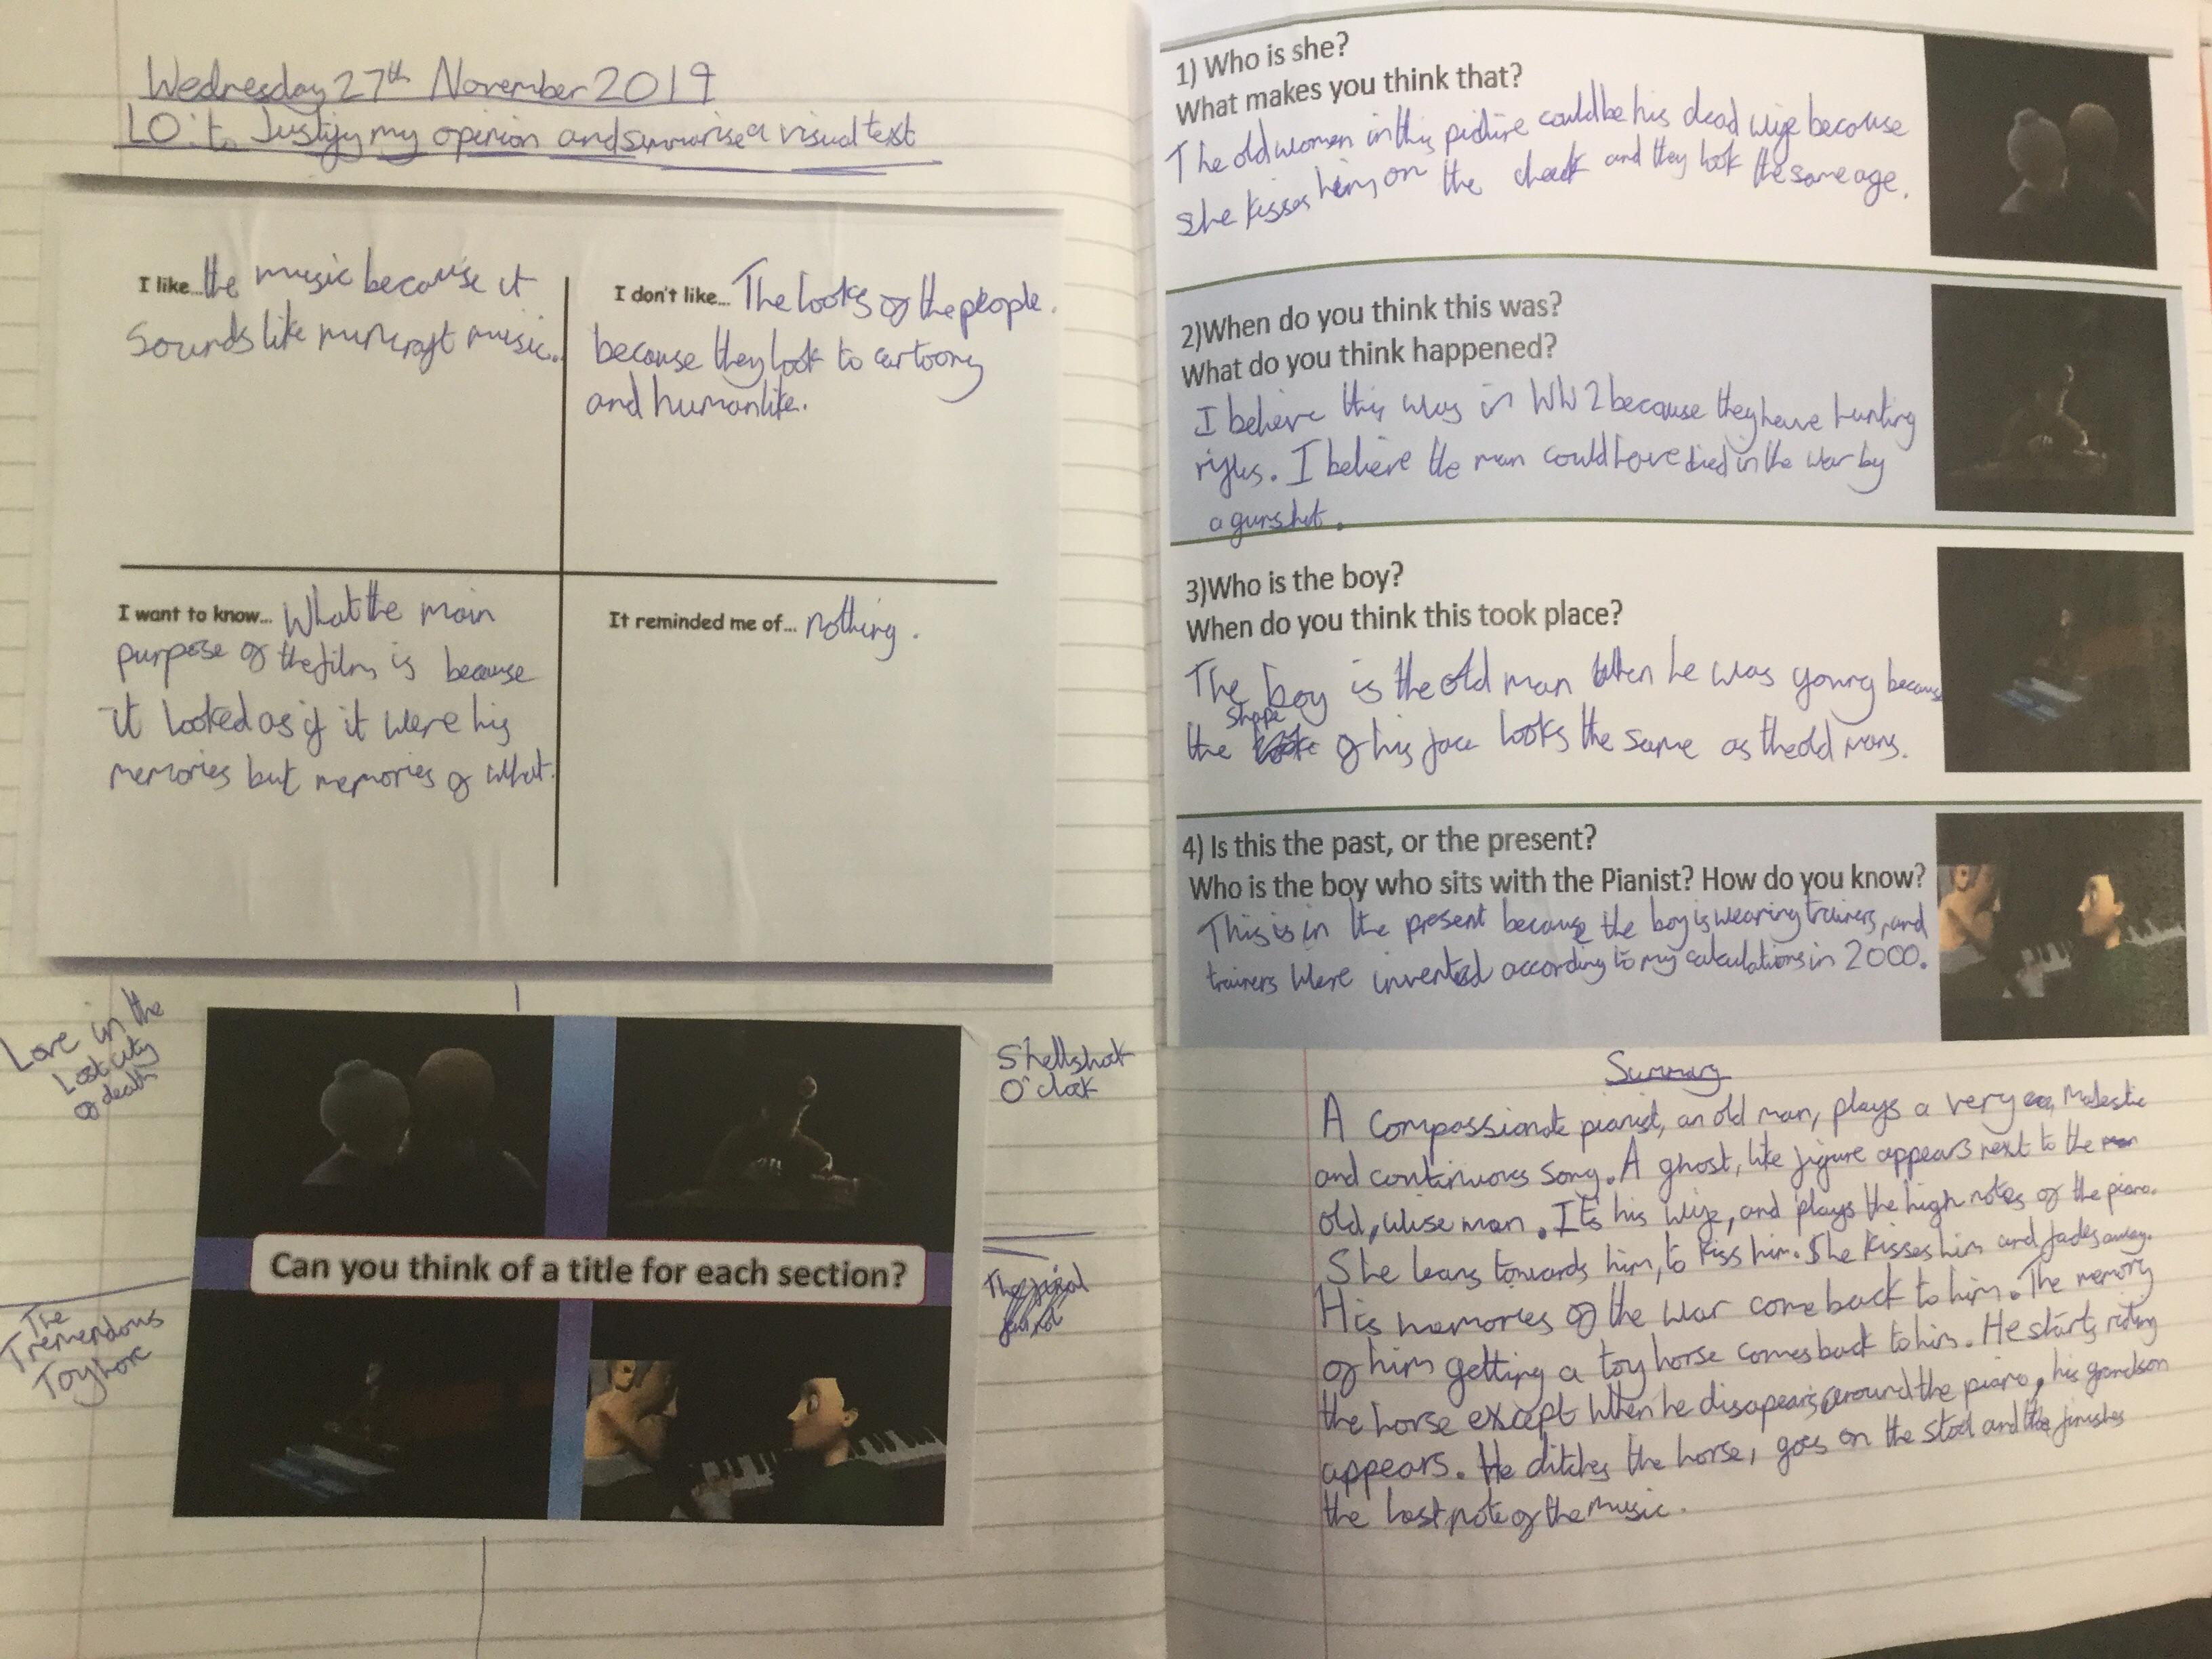 Wednesday 27th November 2019
LO: to Justify my opinion and summarise a visual text
I like... the music because it
Sounds like mincraft music.
I don't like... The looks of the people.
because they look to cartoony
and humanlike.
I want to know... What the main
purpose of the film is because
it looked as if it were his
memories but memories of what.
It reminded me of... nothing.
Love in the
Lost city
of death
Shellshot
O'clock
Can you think of a title for each section?
The
Tremendous
Toyhorc
The final
1) Who is she?
What makes you think that?
The old women in this picture could be his dead wife because
she kisses him on the cheek and they look the same age.
2)When do you think this was?
What do you think happened?
I believe this was in WW2 because they have hunting
rifles. I believe the man could have died in the war by
a gunshot.
3)Who is the boy?
When do you think this took place?
The boy is the old man When he was young because
the shape of his face looks the same as the old mans.
4) Is this the past, or the present?
Who is the boy who sits with the Pianist? How do you know?
This is in the present because the boy is wearing trainers, and
trainers Were invented according to my calculations in 2000.
Summary
A compassionate pianist, an old man, plays a very Majestic
and continuous song. A ghost, like figure appears next to the
old, wise man. It's his wife, and plays the high notes of the piano.
She leans towards him, to kiss him. She kisses him and fades away.
His memories of the war come back to him. The memory
of him getting a toy horse comes back to him. He starts riding
the horse except When he disapears around the piano, his grandson
appears. He ditches the horse, goes on the stool and finishes
the last note of the music.